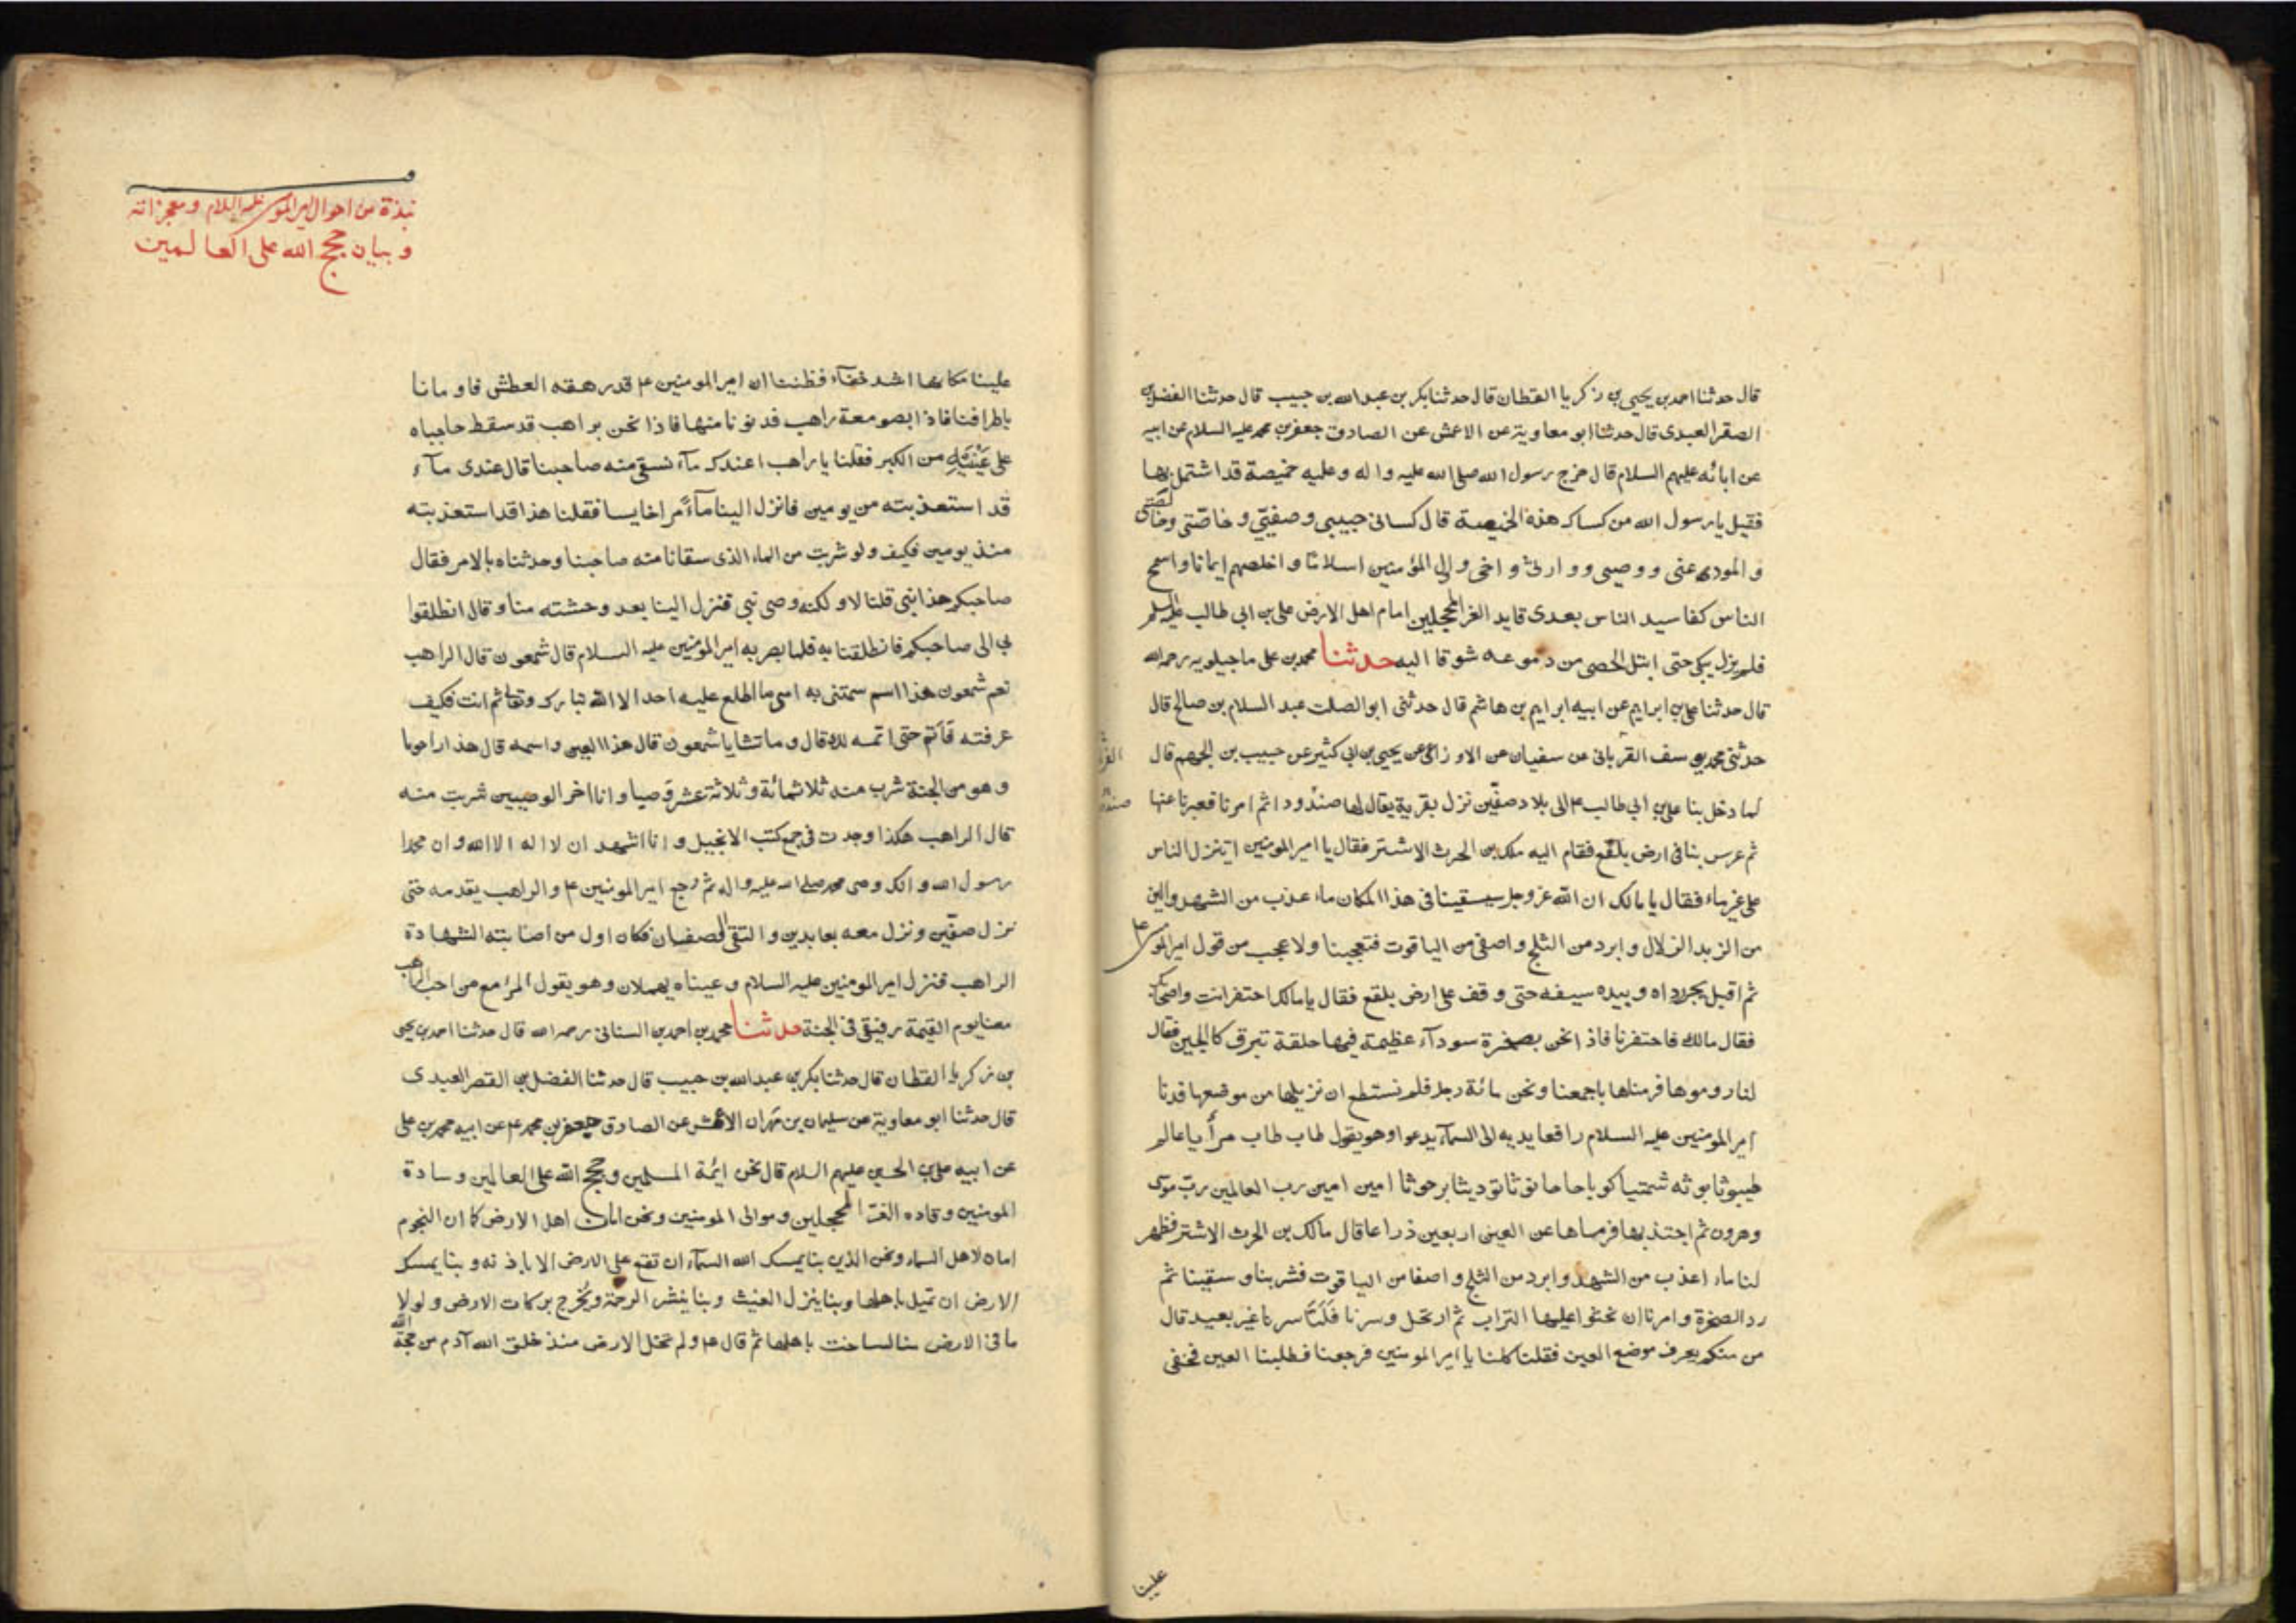 قال حدثنا احمد بن يحيى بن زكريا القطان قال حدثنا بكر بن عبد الله بن حبيب قال حدثنا الفضل بن
الصقر العبدى قال حدثنا ابو معاوية عن الاعمش عن الصادق جعفر بن محمد عليه السلام عن ابيه
عن ابائه عليهم السلام قال خرج رسول الله صلى الله عليه واله وعليه خميصة قد اشتمل بها
فقيل يا رسول الله من كساك هذه الخميصة قال كسانى حبيبى وصفيتى وخاصتى وخالصتى
والمودى عنى ووصيى ووارثى واخى واول المؤمنين اسلاما واخلصهم ايمانا واسمح
الناس كفا سيد الناس بعدى قايد الغر المحجلين امام اهل الارض على بن ابى طالب عليه السلم
فلم يزل يبكى حتى ابتل الحصى من دموعه شوقا اليه حدثنا محمد بن على ماجيلويه رحمه الله
قال حدثنا على بن ابراهيم عن ابيه ابراهيم بن هاشم قال حدثنى ابو الصلت عبد السلام بن صالح قال
حدثنى محمد بن يوسف القربانى عن سفيان عن الاوزاعى عن يحيى بن ابى كثير عن حبيب بن الجهم قال
لما دخل بنا على بن ابى طالب ع الى بلاد صفين نزل بقرية يقال لها صندودا ثم امرنا فعبرنا عنها
ثم عرس بنا فى ارض بلقع فقام اليه ملك بن الحرث الاشتر فقال يا امير المومنين اتنزل الناس
على غير ماء فقال يا مالك ان الله عز وجل سيسقينا فى هذا المكان ماء عذب من الشهد والين
من الزبد الزلال وابرد من الثلج واصفى من الياقوت فتعجبنا ولا عجب من قول امير المومنين ع
ثم اقبل يجر رداه وبيده سيفه حتى وقف على ارض بلقع فقال يا مالك احتفر انت واصحابك
فقال مالك فاحتفرنا فاذا نحن بصخرة سودآء عظيمة فيها حلقة تبرق كاللجين فقال
لنا روموها فرمناها باجمعنا ونحن مائة رجل فلم نستطع ان نزيلها من موضعها فدنا
امير المومنين عليه السلام رافعا يديه الى السمآء يدعوا وهو يقول طاب طاب مرأ يا عالم
طيبوثا بوثه شمتيا كوبا حاحا نوثا توديثا برحوثا امين امين رب العالمين رب موسى
وهرون ثم اجتذبها فرماها عن العين اربعين ذراعا قال مالك بن الحرث الاشتر فظهر
لنا ماء اعذب من الشهد وابرد من الثلج واصفا من الياقوت فشربنا وسقينا ثم
رد الصخرة وامرنا ان نحثوا عليها التراب ثم ارتحل وسرنا فلما سرنا غير بعيد قال
من منكم يعرف موضع العين فقلنا كلنا يا امير المومنين فرجعنا فطلبنا العين فخفى
علينا
نبذة من احوال امير المومنين عليه السلام ومعجزاته
وبيان حجج الله على العالمين
علينا مكانها اشد خفآء فظننا ان امير المومنين ع قد رهقه العطش فاومانا
باطرافنا فاذا بصومعة راهب فدنونا منها فاذا نحن براهب قد سقط حاجباه
على عينيه من الكبر فقلنا يا راهب اعندك مآء نسقى منه صاحبنا قال عندى مآء
قد استعذبته من يومين فانزل الينا مآءً مرا خايسا فقلنا هذا قد استعذبته
منذ يومين فكيف ولو شربت من الماء الذى سقانا منه صاحبنا وحدثناه بالامر فقال
صاحبكم هذا نبى قلنا لا ولكنه وصى نبى فنزل الينا بعد وحشته منا وقال انطلقوا
بى الى صاحبكم فانطلقنا به فلما بصر به امير المومنين عليه السلام قال شمعون قال الراهب
نعم شمعون هذا اسم سمتنى به امى ما اطلع عليه احد الا الله تبارك وتعالى ثم انت فكيف
عرفته فاتم حتى اتمه لك قال وما تشا يا شمعون قال هذا العين واسمه قال هذا راحوما
وهو من الجنة شرب منه ثلاثمائة وثلاثة عشر وصيا وانا اخر الوصيين شربت منه
قال الراهب هكذا وجدت فى جمع كتب الانجيل وانا اشهد ان لا اله الا الله وان محمدا
رسول الله وانك وصى محمد صلى الله عليه واله ثم رجع امير المومنين ع والراهب يقدمه حتى
نزل صفين ونزل معه بعابدين والتقى الصفان فكان اول من اصابته الشهادة
الراهب فنزل امير المومنين عليه السلام وعيناه يهملان وهو يقول المرء مع من احب الراهب
معنا يوم القيمة رفيقى فى الجنة حدثنا محمد بن احمد بن السنانى رحمه الله قال حدثنا احمد بن يحيى
بن زكريا القطان قال حدثنا بكر بن عبد الله بن حبيب قال حدثنا الفضل بن القصر العبدى
قال حدثنا ابو معاوية عن سليمان بن مهران الاعمش عن الصادق جعفر بن محمد ع عن ابيه محمد بن على
عن ابيه على بن الحسين عليهم السلام قال نحن ايمة المسلمين وحجج الله على العالمين وسادة
المومنين وقاده الغر المحجلين وموالى المومنين ونحن امان اهل الارض كما ان النجوم
امان لاهل السماء ونحن الذين بنا يمسك الله السمآء ان تقع على الارض الا باذنه وبنا يمسك
الارض ان تميل باهلها وبنا ينزل الغيث وبنا ينشر الرحمة ويخرج بركات الارض ولولا
ما فى الارض منا لساخت باهلها ثم قال ع ولم تخل الارض منذ خلق الله آدم من حجة الله